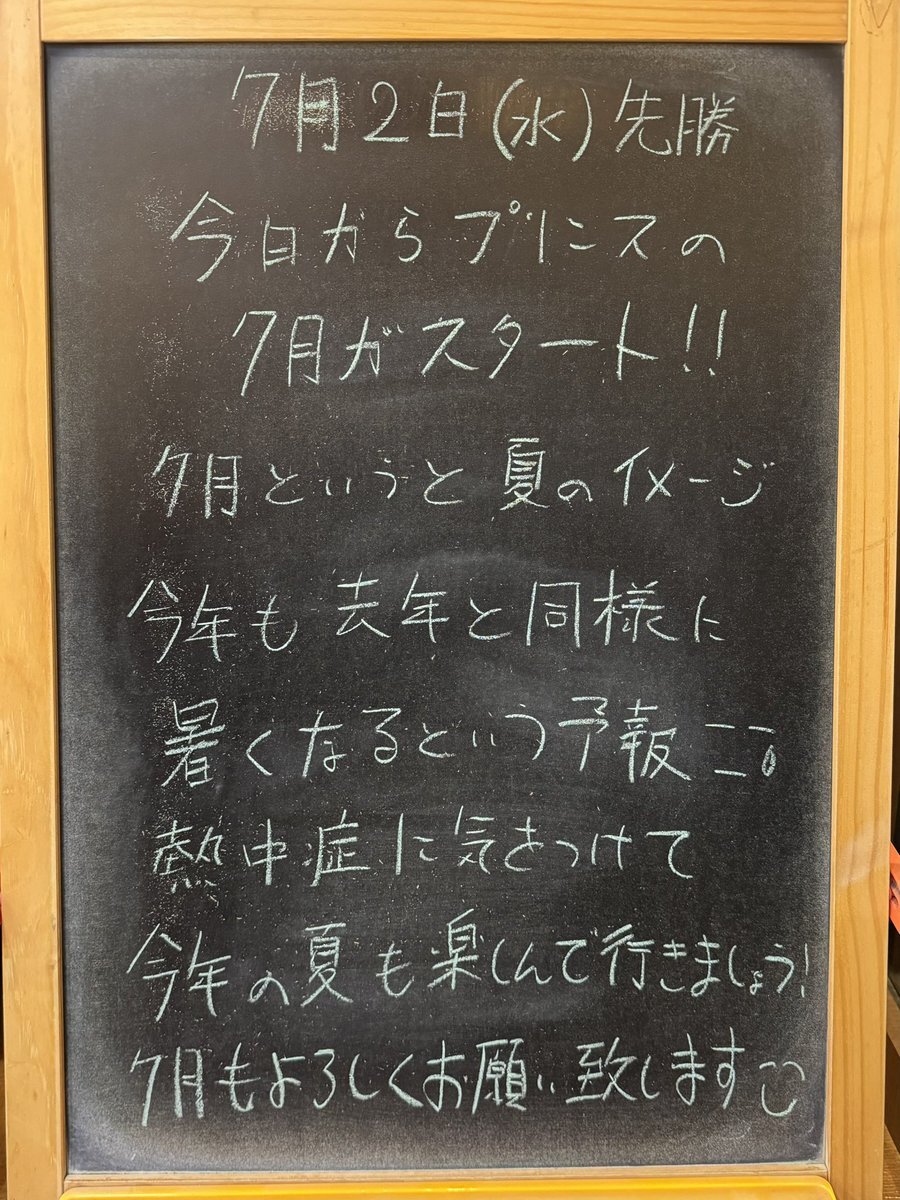 7月2日(水)先勝
今日からプリンスの
7月がスタート!!
7月というと夏のイメージ
今年も去年と同様に
暑くなるという予報
熱中症に気をつけて
今年の夏も楽しんで行きましょう!
7月もよろしくお願い致します